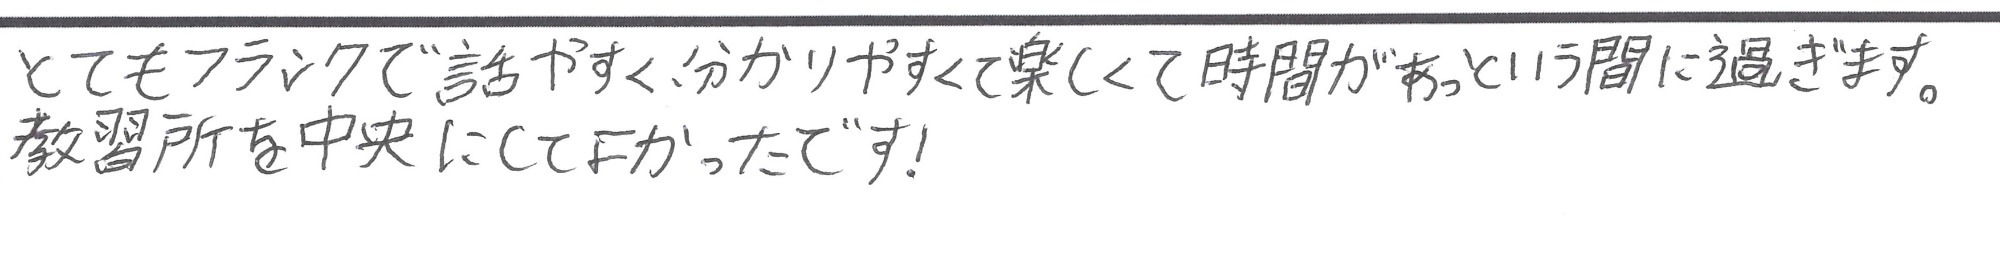 とてもフランクで話やすく、分かりやすくて楽しくて時間があっという間に過ぎます。
教習所を中央にしてよかったです!